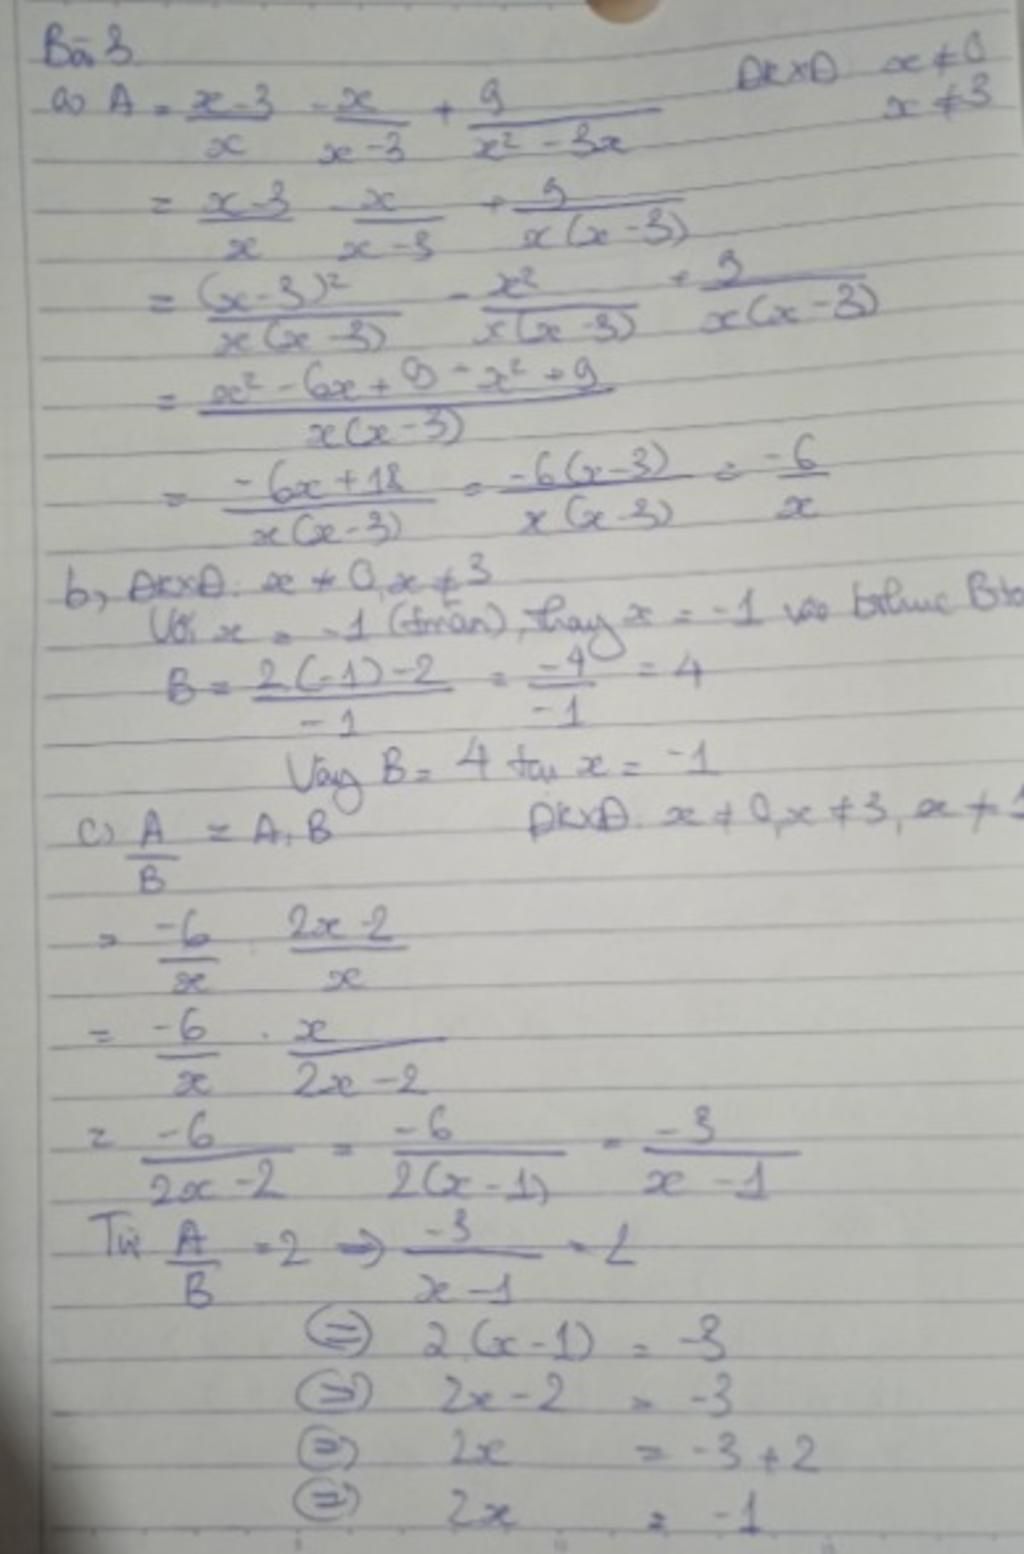 Bài 3
ĐKXĐ x ≠ 0
x ≠ 3
a) A = (x-3)/x - x/(x-3) + 9/(x² - 3x)
= (x-3)/x - x/(x-3) + 9/(x(x-3))
= (x-3)²/(x(x-3)) - x²/(x(x-3)) + 9/(x(x-3))
= (x² - 6x + 9 - x² + 9)/(x(x-3))
= (-6x+18)/(x(x-3)) = -6(x-3)/(x(x-3)) = -6/x
b, ĐKXĐ: x ≠ 0, x ≠ 3
Với x = -1 (tmãn), thay x = -1 vào bthức B ta
B = (2(-1)-2)/-1 = -4/-1 = 4
Vậy B = 4 tại x = -1
c) A/B = A : B ĐKXĐ. x ≠ 0, x ≠ 3, x ≠ 1
= -6/x : (2x-2)/x
= -6/x . x/(2x-2)
= -6/(2x-2) = -6/(2(x-1)) = -3/(x-1)
Từ A/B = 2 => -3/(x-1) = 2
(=) 2(x-1) = -3
(=) 2x-2 = -3
(=) 2x = -3+2
(=) 2x = -1